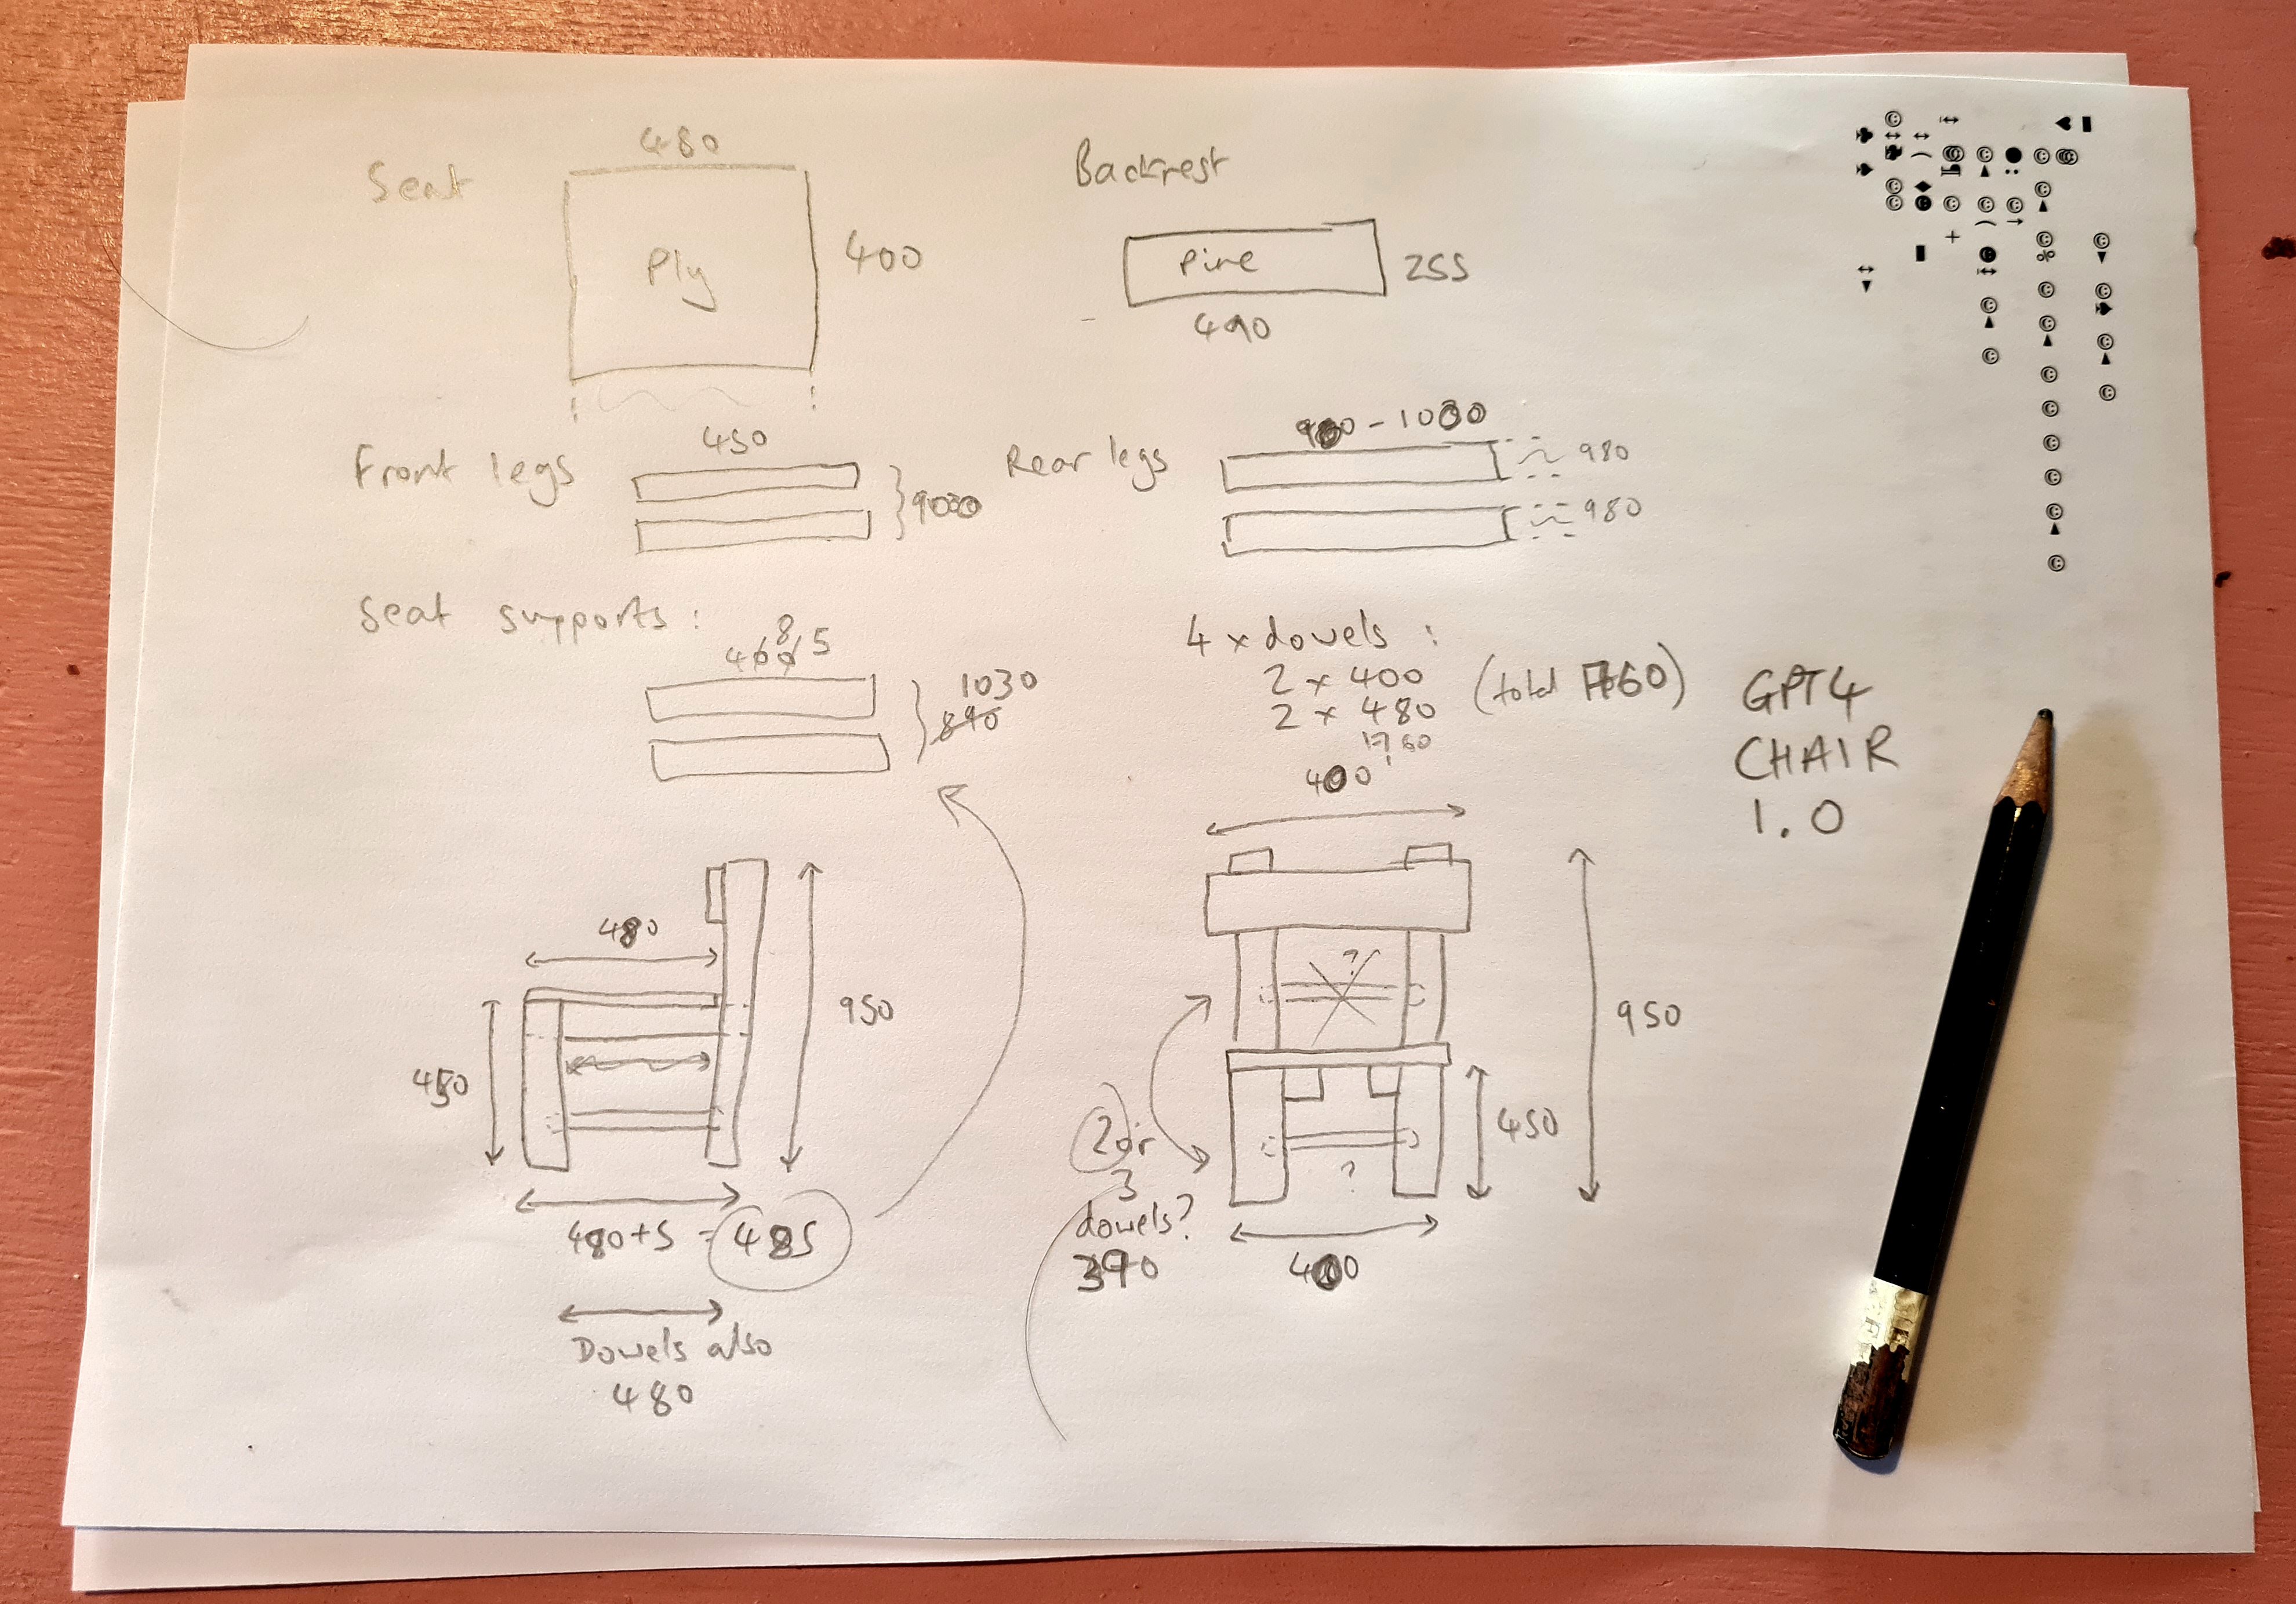 Seat
480
Ply
400
Backrest
Pine
255
490
Front legs
450
Rear legs
980
980
Seat supports:
1030
890
4 x dowels:
2 x 400
2 x 480
(total 1760)
1760
GPT4
CHAIR
1.0
400
480
950
450
480+5 = 485
Dowels also
480
?
950
450
?
2 or
3
dowels?
390
400